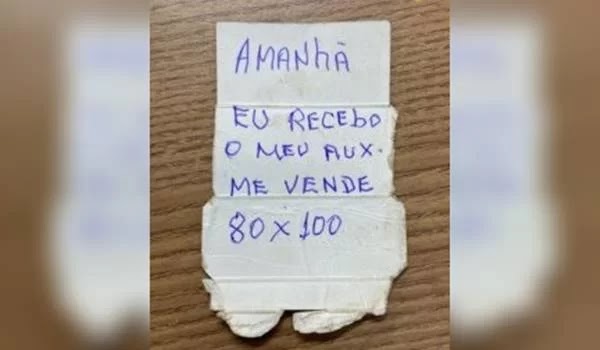 AMANHÃ
EU RECEBO
O MEU AUX.
ME VENDE
80 x 100